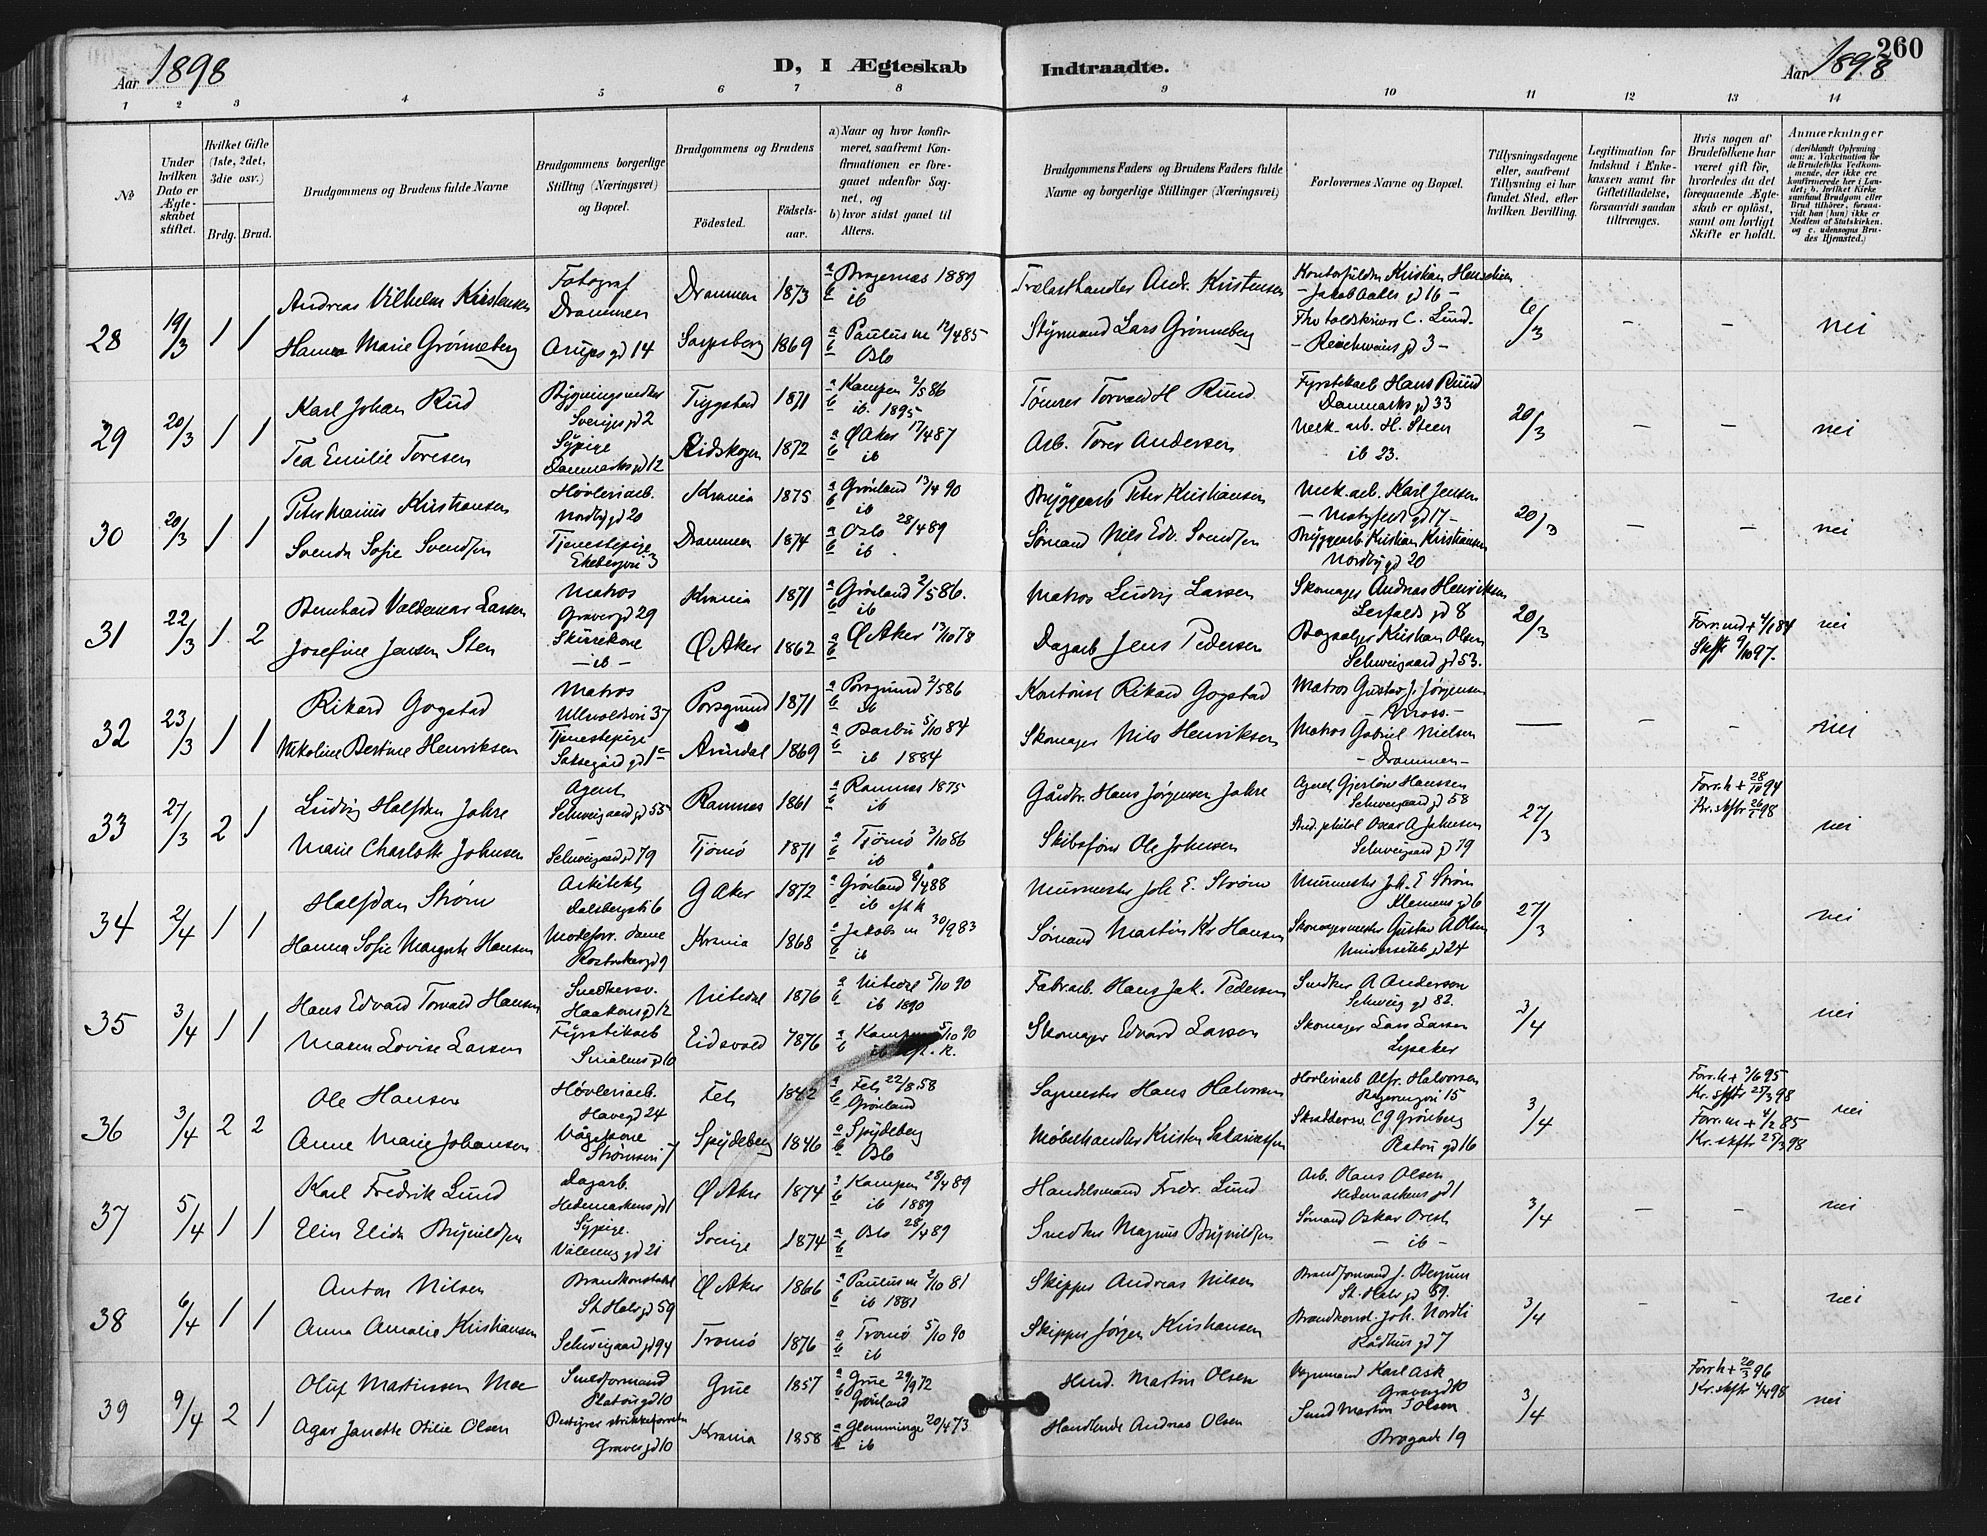 Aar 1898
D, I Ægteskab Indtraadte.
Aar 1898
260
1 2 3 4 5 6 7 8 9 10 11 12 13 14
№
Under hvilken Dato er Ægteskabet stiftet.
Hvilket Gifte (1ste, 2det, 3die osv.)
Brdg. Brud.
Brudgommens og Brudens fulde Navne
Brudgommens borgerlige Stilling (Næringsvei) og Bopæl.
Brudgommens og Brudens
Fødested.
Fødselsaar.
a) Naar og hvor konfirmeret, saafremt Konfirmationen er foregaaet udenfor Sognet, og
b) hvor sidst gaaet til Alters.
Brudgommens Faders og Brudens Faders fulde Navne og borgerlige Stillinger (Næringsvei)
Forlovernes Navne og Bopæl.
Tillysningsdagene eller, saafremt Tillysning ei har fundet Sted, efter hvilken Bevilling.
Legitimation for Indskud i Enkekassen samt for Giftetilladelse, forsaavidt saadan tiltrænges.
Hvis nogen af Brudefolkene har været gift før, hvorledes da det foregaaende Ægteskab er opløst, samt om lovligt Skifte er holdt.
Anmærkninger (deriblandt Oplysning om: a. Vakcination for de Brudefolks Vedkommende, der ikke ere konfirmerede her i Landet; b. hvilket Kirkesamfund Brudgom eller Brud tilhører, forsaavidt han (hun) ikke er Medlem af Statskirken, og c. udensogns Brudes Hjemsted.)
28 19/3 1 1
Andreas Vilhelm Kristensen Fotograf Drammen Drammen 1873 a Bragernæs 1889 b ib
Trælasthandler Andr. Kristensen
Jakob Aalls gd 16
6/3 - - nei
Hanna Marie Grønneberg Arups gd 14 Sarpsborg 1869 a Paulus m 12/4 85 b Oslo
Styrmand Lars Grønneberg
C. Lund
gd 3
29 20/3 1 1
Karl Johan Rud Sveriges gd 2 Trygstad 1871 a Kampen 2/5 86 b ib. 1895
Tømrer Torvald H. Ruud
Fyrstikarb Hans Ruud Danmarks gd 33
20/3 - - nei
Tea Emilie Toresen Sypige Danmarks gd 12 Eidskogen 1872 a Ø Aker 17/4 87 b ib
Arb. Tores Andersen
Mek. arb. H. Steen ib 23.
30 20/3 1 1
Peter Marius Kristiansen Høvleriarb. Nordby gd 20 Krania 1875 a Grønland 13/4 90 b ib
Bryggearb Peter Kristiansen
Mek. arb. Karl Jensen Motzfeldt gd 17
20/3 - - nei
Svenda Sofie Svendsen Tjenestepige Ekebergvei 3 Drammen 1874 a Oslo 28/4 89 b ib
Sømand Nils Edv. Svendsen
Bryggearb Kristian Kristiansen Nordby gd 20
31 22/3 1 2
Bernhard Valdemar Larsen Matros Graver gd 29 Krania 1871 a Grønland 2/5 86. b ib
Matros Ludvig Larsen
Skomager Andreas Henriksen gd 8
20/3 nei
Josefine Jensen Sten - ib - Ø Aker 1862 a Ø Aker 13/10 78 b
Dagarb Jens Pedersen
Kristian Olsen Schweigaard gd 53.
Skft 9/10 97.
32 23/3 1 1
Rikard Gogstad Matros Ullevoldsvei 37 Porsgrund 1871 a Porsgrund 2/5 86 b ib
Kontorist Rikard Gogstad
Matros Gustav J. Jørgensen
- - nei
Nikoline Bertine Henriksen Tjenestepige Arendal 1869 a Barbu 5/10 84 b ib 1884
Skomager Nils Henriksen
Matros Gabriel Nielsen - Drammen -
33 27/3 2 1
Ludvig Halfdan Jahre Agent Schweigaard gd 55 Ramnæs 1861 a Ramnæs 1875 b ib
Gårdbr. Hans Jørgensen Jahre
Agent Gjerløw Hanssen Schweigaard gd 58
27/3
Forr. h + 28/10 94
Kr. skftr 26/1 98
nei
Marie Charlotte Johnsen Schweigaard gd 79 Tjømø 1871 a Tjømø 3/10 86 b ib
Skibsfører Ole Johnsen
Stud. philol Oscar A Johnsen Schweigaard gd 79
34 2/4 1 1
Halfdan Strøm Arkitekt Dalsbergsti 6 G Aker 1872 a Grønland 8/4 88 b ib
Murmester Joh E. Strøm
Murmester Joh. E Strøm Klemens gd 6
27/3 nei
Hanna Sofie Margrete Hansen Krania 1868 a Jakobs m 30/9 83 b ib
Sømand Martin Kr Hansen
Skomagermester Gustav A Olsen Universitets gd 24
35 3/4 1 1
Hans Edvard Torvald Hansen Snedkersv. Haakons gd 12 Nitedal 1876 a Nitedal 5/10 90 b ib 1890
Fabr. arb. Hans Jak. Pedersen
Snedker A Anderson Schweig gd 82.
3/4 nei
Maren Lovise Larsen Fyrstikarb Smalens gd 10 Eidsvold 1876 a Kampen 5/10 90 b ib
Skomager Edvard Larsen
Skomager Lars Larsen Lysaker
36 3/4 2 2
Ole Hansen Høvleriarb. Haveg d 24 Fet 1842 a Fet 22/8 58 b Grønland
Sagmester Hans Halvorsen
Høvleriarb Alfr. Halvorsen 15
3/4
Forr. h + 3/6 95
Kr. skftr 25/3 98
Forr. m + 4/2 85
Kr. skftr 25/3 98
nei
Anne Marie Johansen Strømsvei 7 Spydeberg 1846 a Spydeberg b Oslo
Møbelhandler Kristen Sakariassen
Skræddersv. C G Grønberg Platou gd 16
37 5/4 1 1
Karl Fredrik Lund Dagarb. Hedemarkens gd 1 Ø Aker 1874 a Kampen 28/4 89 b ib 1889
Handelsmand Fredr. Lund
Arb. Hans Olsen Hedemarkens gd 1
3/4 - - nei
Elin Elida Brynildsen Sypige. Vålereng gd 21 Sverige 1874 a Oslo 28/4 89 b
Snedker Magnus Brynildsen
Sømand Oskar - ib -
38 6/4 1 1
Anton Nilsen Brandkonstabel St. Halv gd 59 Ø Aker 1866 a Paulus m 2/10 81 b ib 1881
Skipper Andreas Nilsen
Brandformand J. Bergum St. Halv gd 59.
3/4 - - nei
Anna Amalie Kristiansen Schweigaard gd 94 Tromø 1876 a Tromø 5/10 90 b ib
Skipper Jørgen Kristiansen
Brandkonst. Joh. Nordli Rådhus gd 7
39 9/4 2 1
Oluf Martinssen Moe Smedformand Platou gd 10 Grue 1857 a Grue 29/9 72 b Grønland
Husd. Martin Olsen
Karl Ask Graver gd 10
3/4
Forr. h + 20/3 96
Kr. skftr 1/4 98
nei
Agar Janette Otilie Olsen Graver gd 10 Krania 1858 a Glemminge 20/4 73 b ib
Handlende Andreas Olsen
Smed Martin Olsen Brogade 19